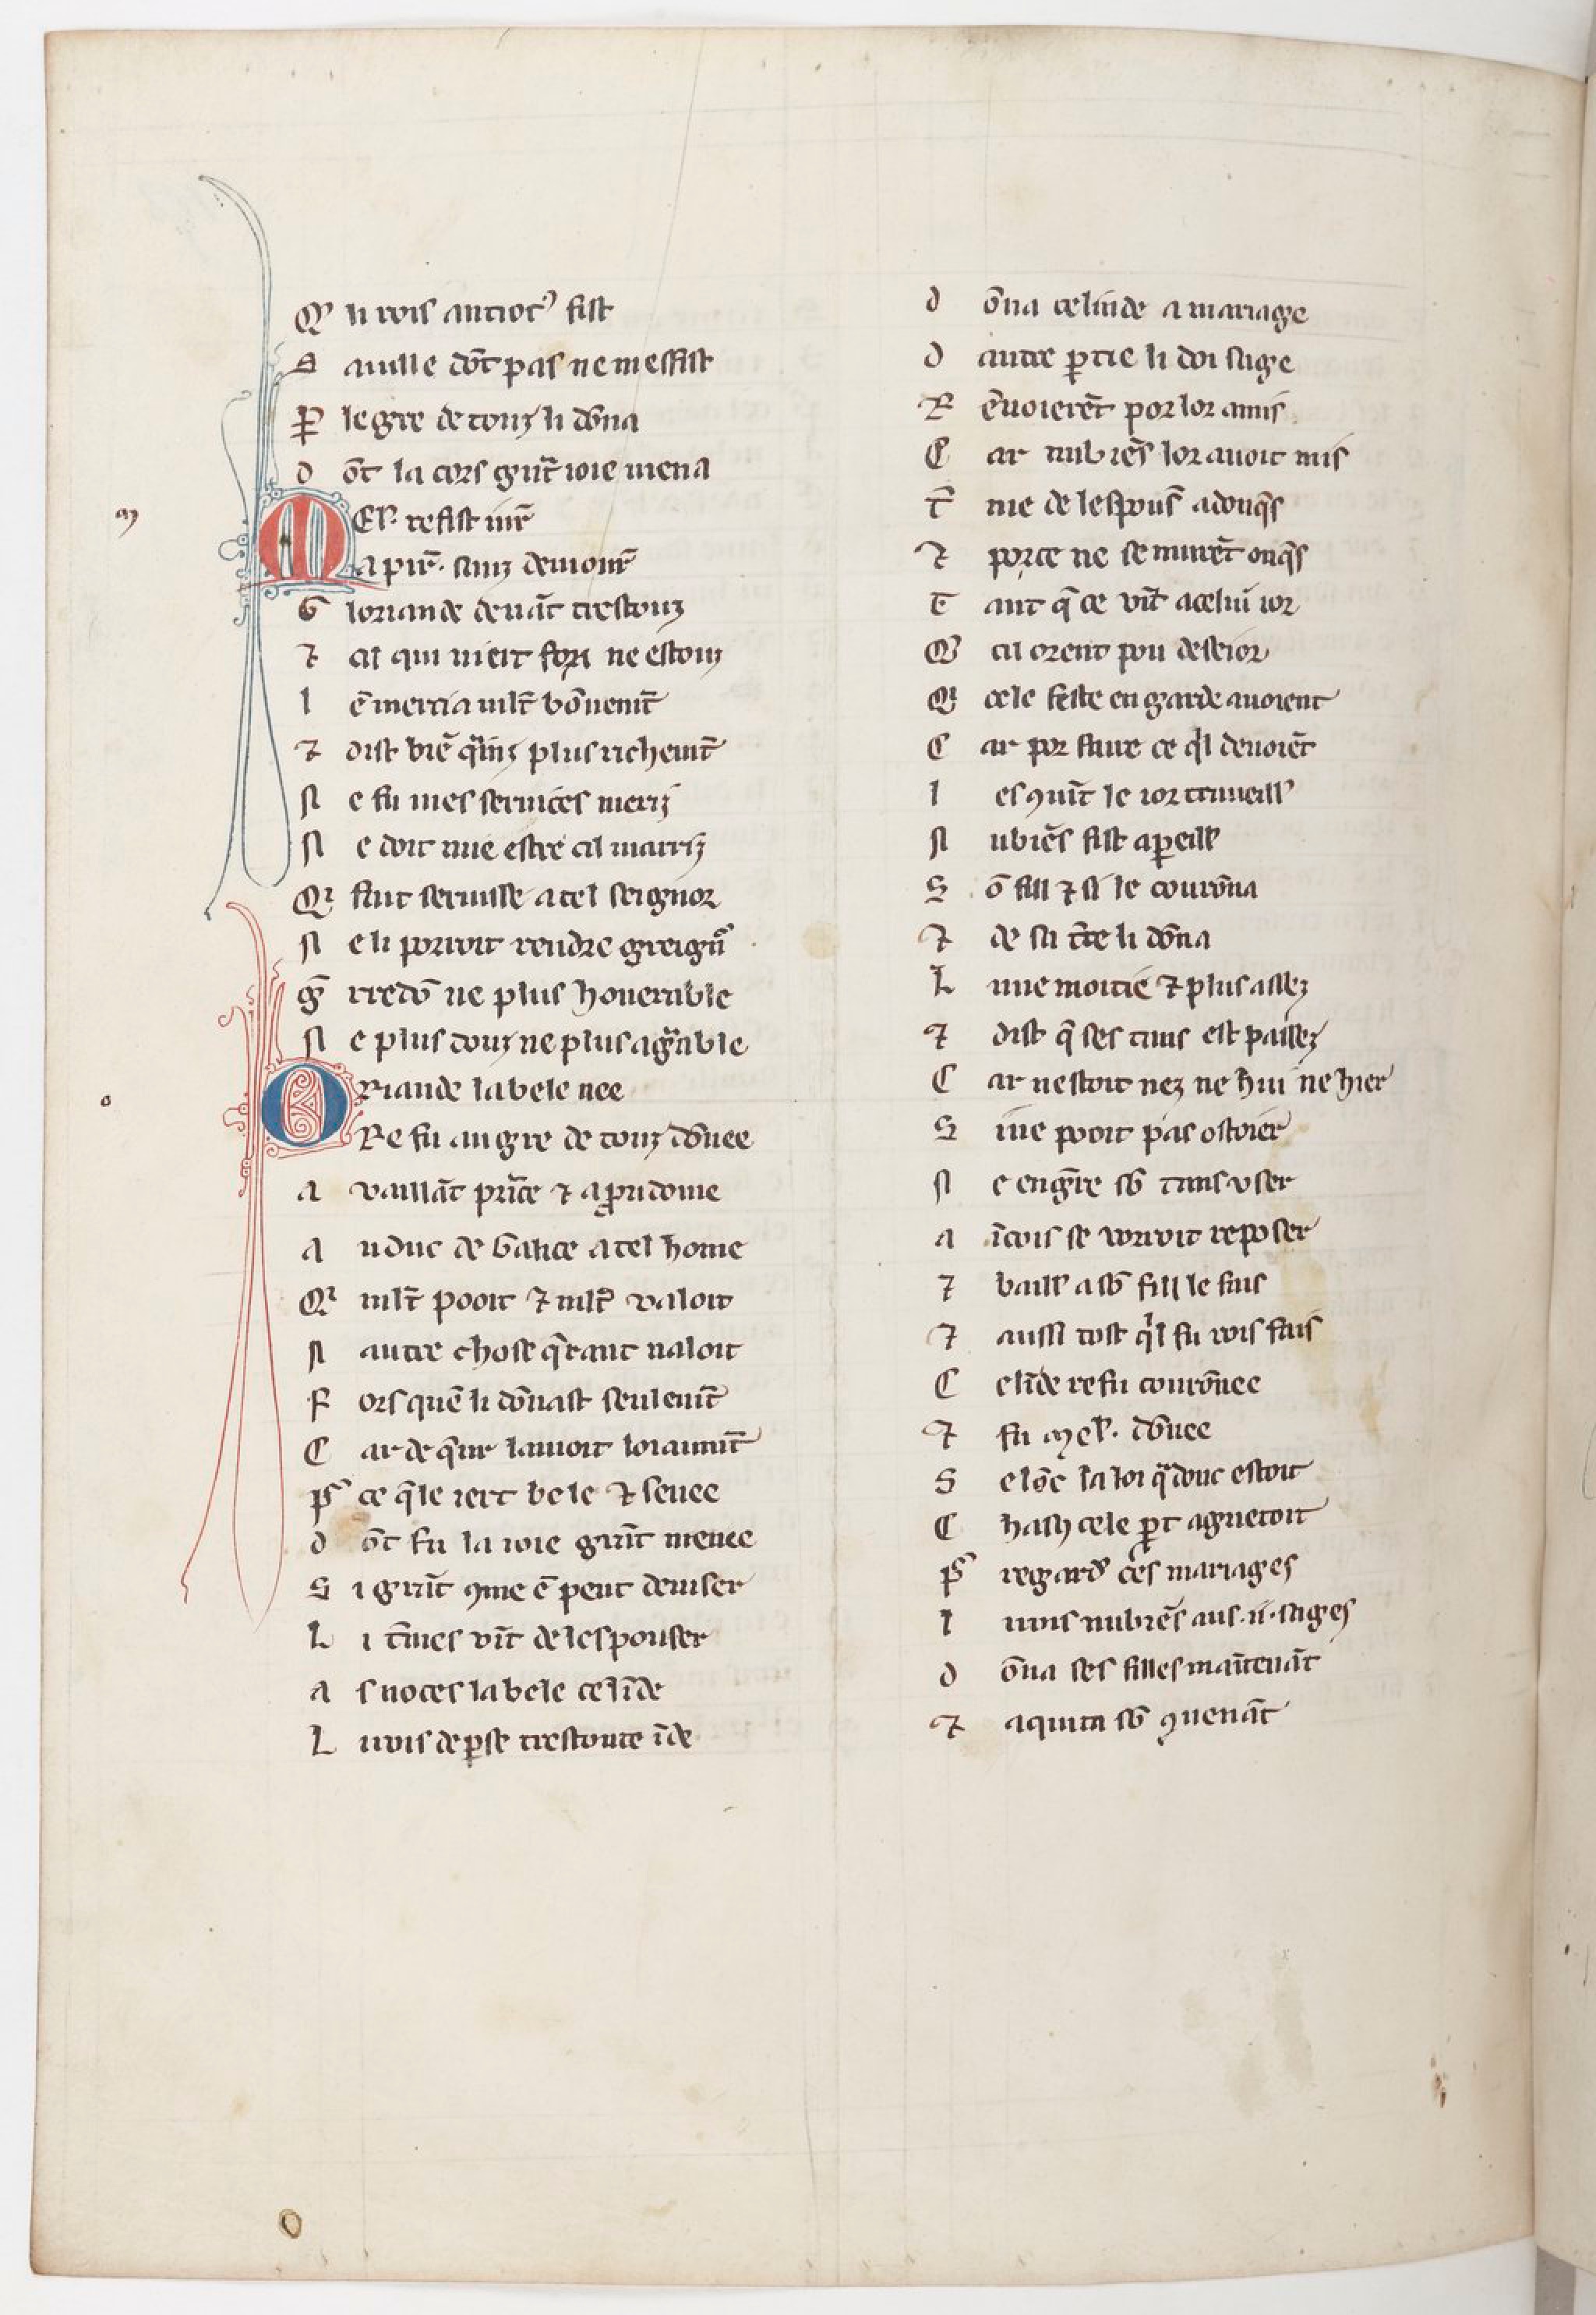 Qͥ li rois antiocꝰ fist
S a uille dōt pas ne mesfist
P le gre de touz li dōna
D ōt la cors gn̄t ioie mena
m
M El'. refist uir̄
a pir̄. sanz demour̄
G loriande deuāt trestouz
⁊ cil qui niert fox ne estouz
l ē mercia ml̄t bōnemēt
⁊ dist biē q̄inz plus richemēt
N e fu mes seruices meriz
N e doit mie estre cil marriz
Qͥ faut seruisse a tel seignor
N e li porroit rendre greign̄
ḡ rredō ne plus honerable
N e plus douz ne plus agͣable
o
O Riande la bele nee
Re fu au gre de touz dōnee
A vaillāt prīce ⁊ a prudome
A u duc de Galice a tel home
Qͥ ml̄t pooit ⁊ ml̄t valoit
N autre chose q̄rant naloit
F ors quē li dōnast seulemēt
C ar de q̄ur lamoit loiaumt̄
P ce q̄le iert bele ⁊ senee
D ōt fu la ioie grāt menee
S i grāt ꝯme ē peut deuiser
L i t̄mes vīt de lespouser
A s noces la bele celīde
L i rois de perse trestoute īde
D ōna celinde a mariage
D autre ꝑtie li doi sage
R ēuoierēt por lor amis
C ar nubiēs lor auoit mis
T̄ me de lespous̄ adonq̄s
⁊ por ce ne se murēt onq̄s
T ant q̄ ce vīt a celui ior
Qͥ cil orent pou de seior
Qͥ cele feste en garde auoient
C ar por faire ce qͥl deuoiēt
l es ꝯuīt le ior traueill'
N ubiēs fist apeill'
S ō fill ⁊ si le courōna
⁊ de sa t̄re li dōna
L une moitie ⁊ plus assez
⁊ dist q̄ ses tans est passez
C ar nestoit nez ne hui ne hier
S ine pooit pas ostoier
N e en gēre sō tans vser
A īcois se voroit reposer
⁊ baill' a sō fill le fais
⁊ aussi tost qͥl fu rois fais
C elīde refu courōnee
⁊ fu mel'. dōnee
S elōc la loi qͣdonc estoit
C hasꝯ cele ꝑt agueroit
P regard' ces mariages
l i rois nubiēs aus .ii. sages
D ōna ses filles maītenāt
⁊ aquita sō ꝯuenāt